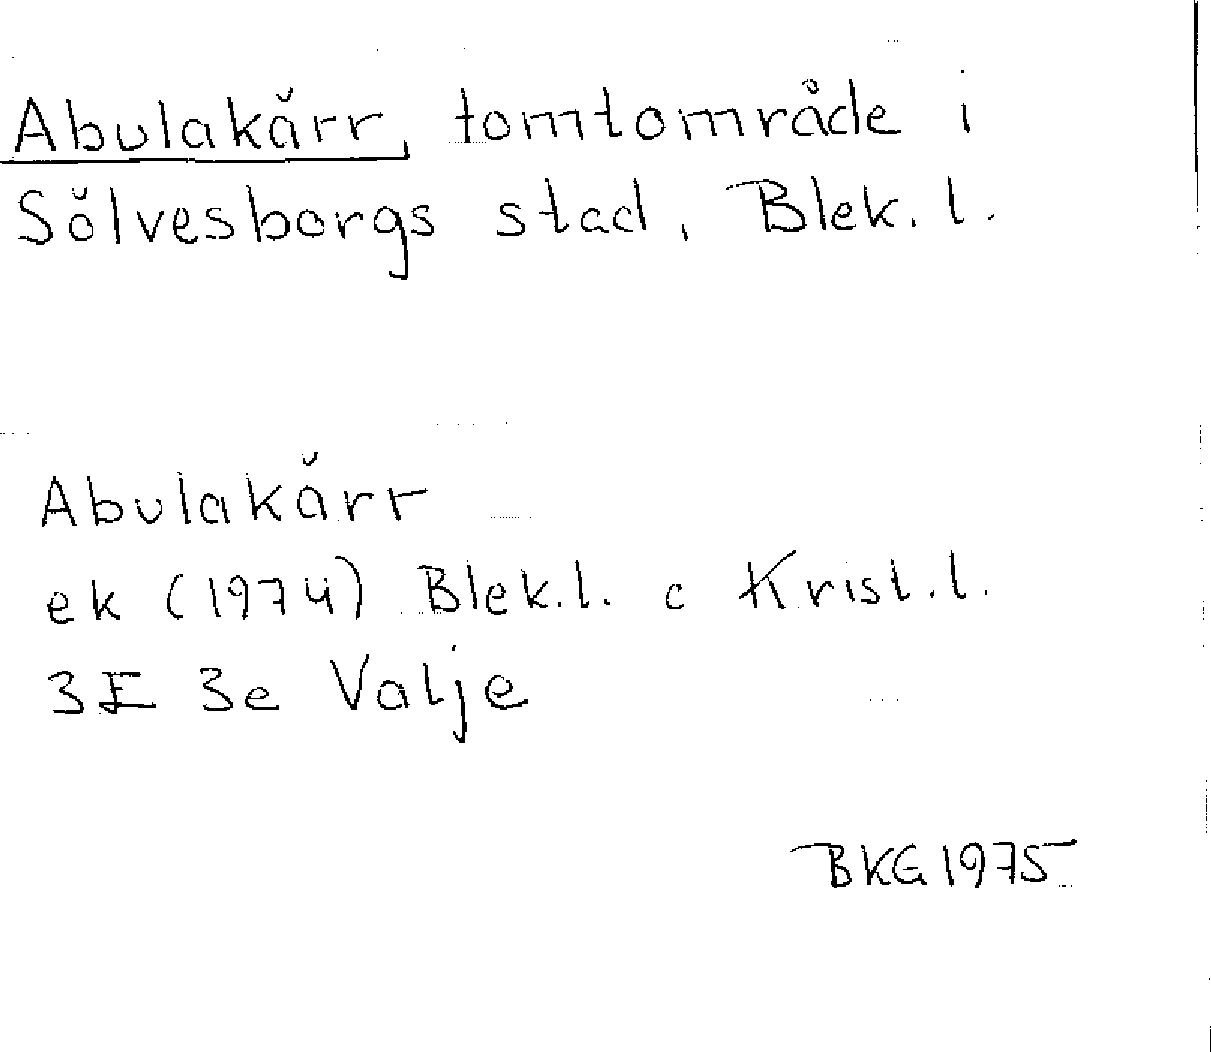 Abulakärr, tomtområde i
Sölvesborgs stad, Blek. l.
Abulakärr
ek (1974) Blek. l. c Krist. l.
3E 3e Valje
BKG 1975